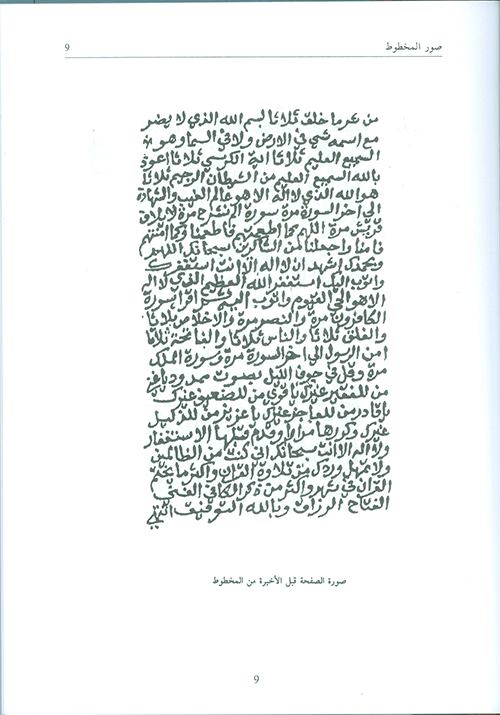 صور المخطوط 9
من شر ما خلق ثلاثا بسم الله الذي لا يضر
مع اسمه شي في الارض ولا في السما وهو
السميع العليم ثلاثا اية الكرسي ثلاثا اعوذ
بالله السميع العليم من الشيطان الرجيم ثلاثا
هو الله الذي لا اله الا هو عالم الغيب والشهادة
الى اخر السورة مرة سورة الم نشرح مرة لايلاف
قريش مرة اللهم كما اطعمتهم فاطعمنا وكما امنتهم
فامنا واجعلنا لمن الشاكرين سبحانك اللهم
وبحمدك اشهد ان لا اله الا انت استغفرك
واتوب اليك استغفر الله العظيم الذي لا اله
الا هو الحي القيوم واتوب اليه اقرا سورة
الكافرون مرة والنصر مرة والاخلاص ثلاثا
والفلق ثلاثا والناس ثلاثا والفاتحة ثلاثا
امن الرسول الى اخر السورة مرة وسورة الملك
مرة وقل في جوف الليل بصوت ممدود يا غني
من للفقير غيرك يا قوي من للضعيف غيرك
يا قادر من للعاجز غيرك يا عزيز من للذليل
غيرك وكررها مرارا وقدم قبلها الاستغفار
ولا اله الا انت سبحانك اني كنت من الظالمين
ولا تمهل وردك من تلاوة القران واكثر ما يختم
القران في شهر واكثر من ذكر الكافي الغني
الفتاح الرزاق وبالله التوفيق انتهى
صورة الصفحة قبل الأخيرة من المخطوط
9